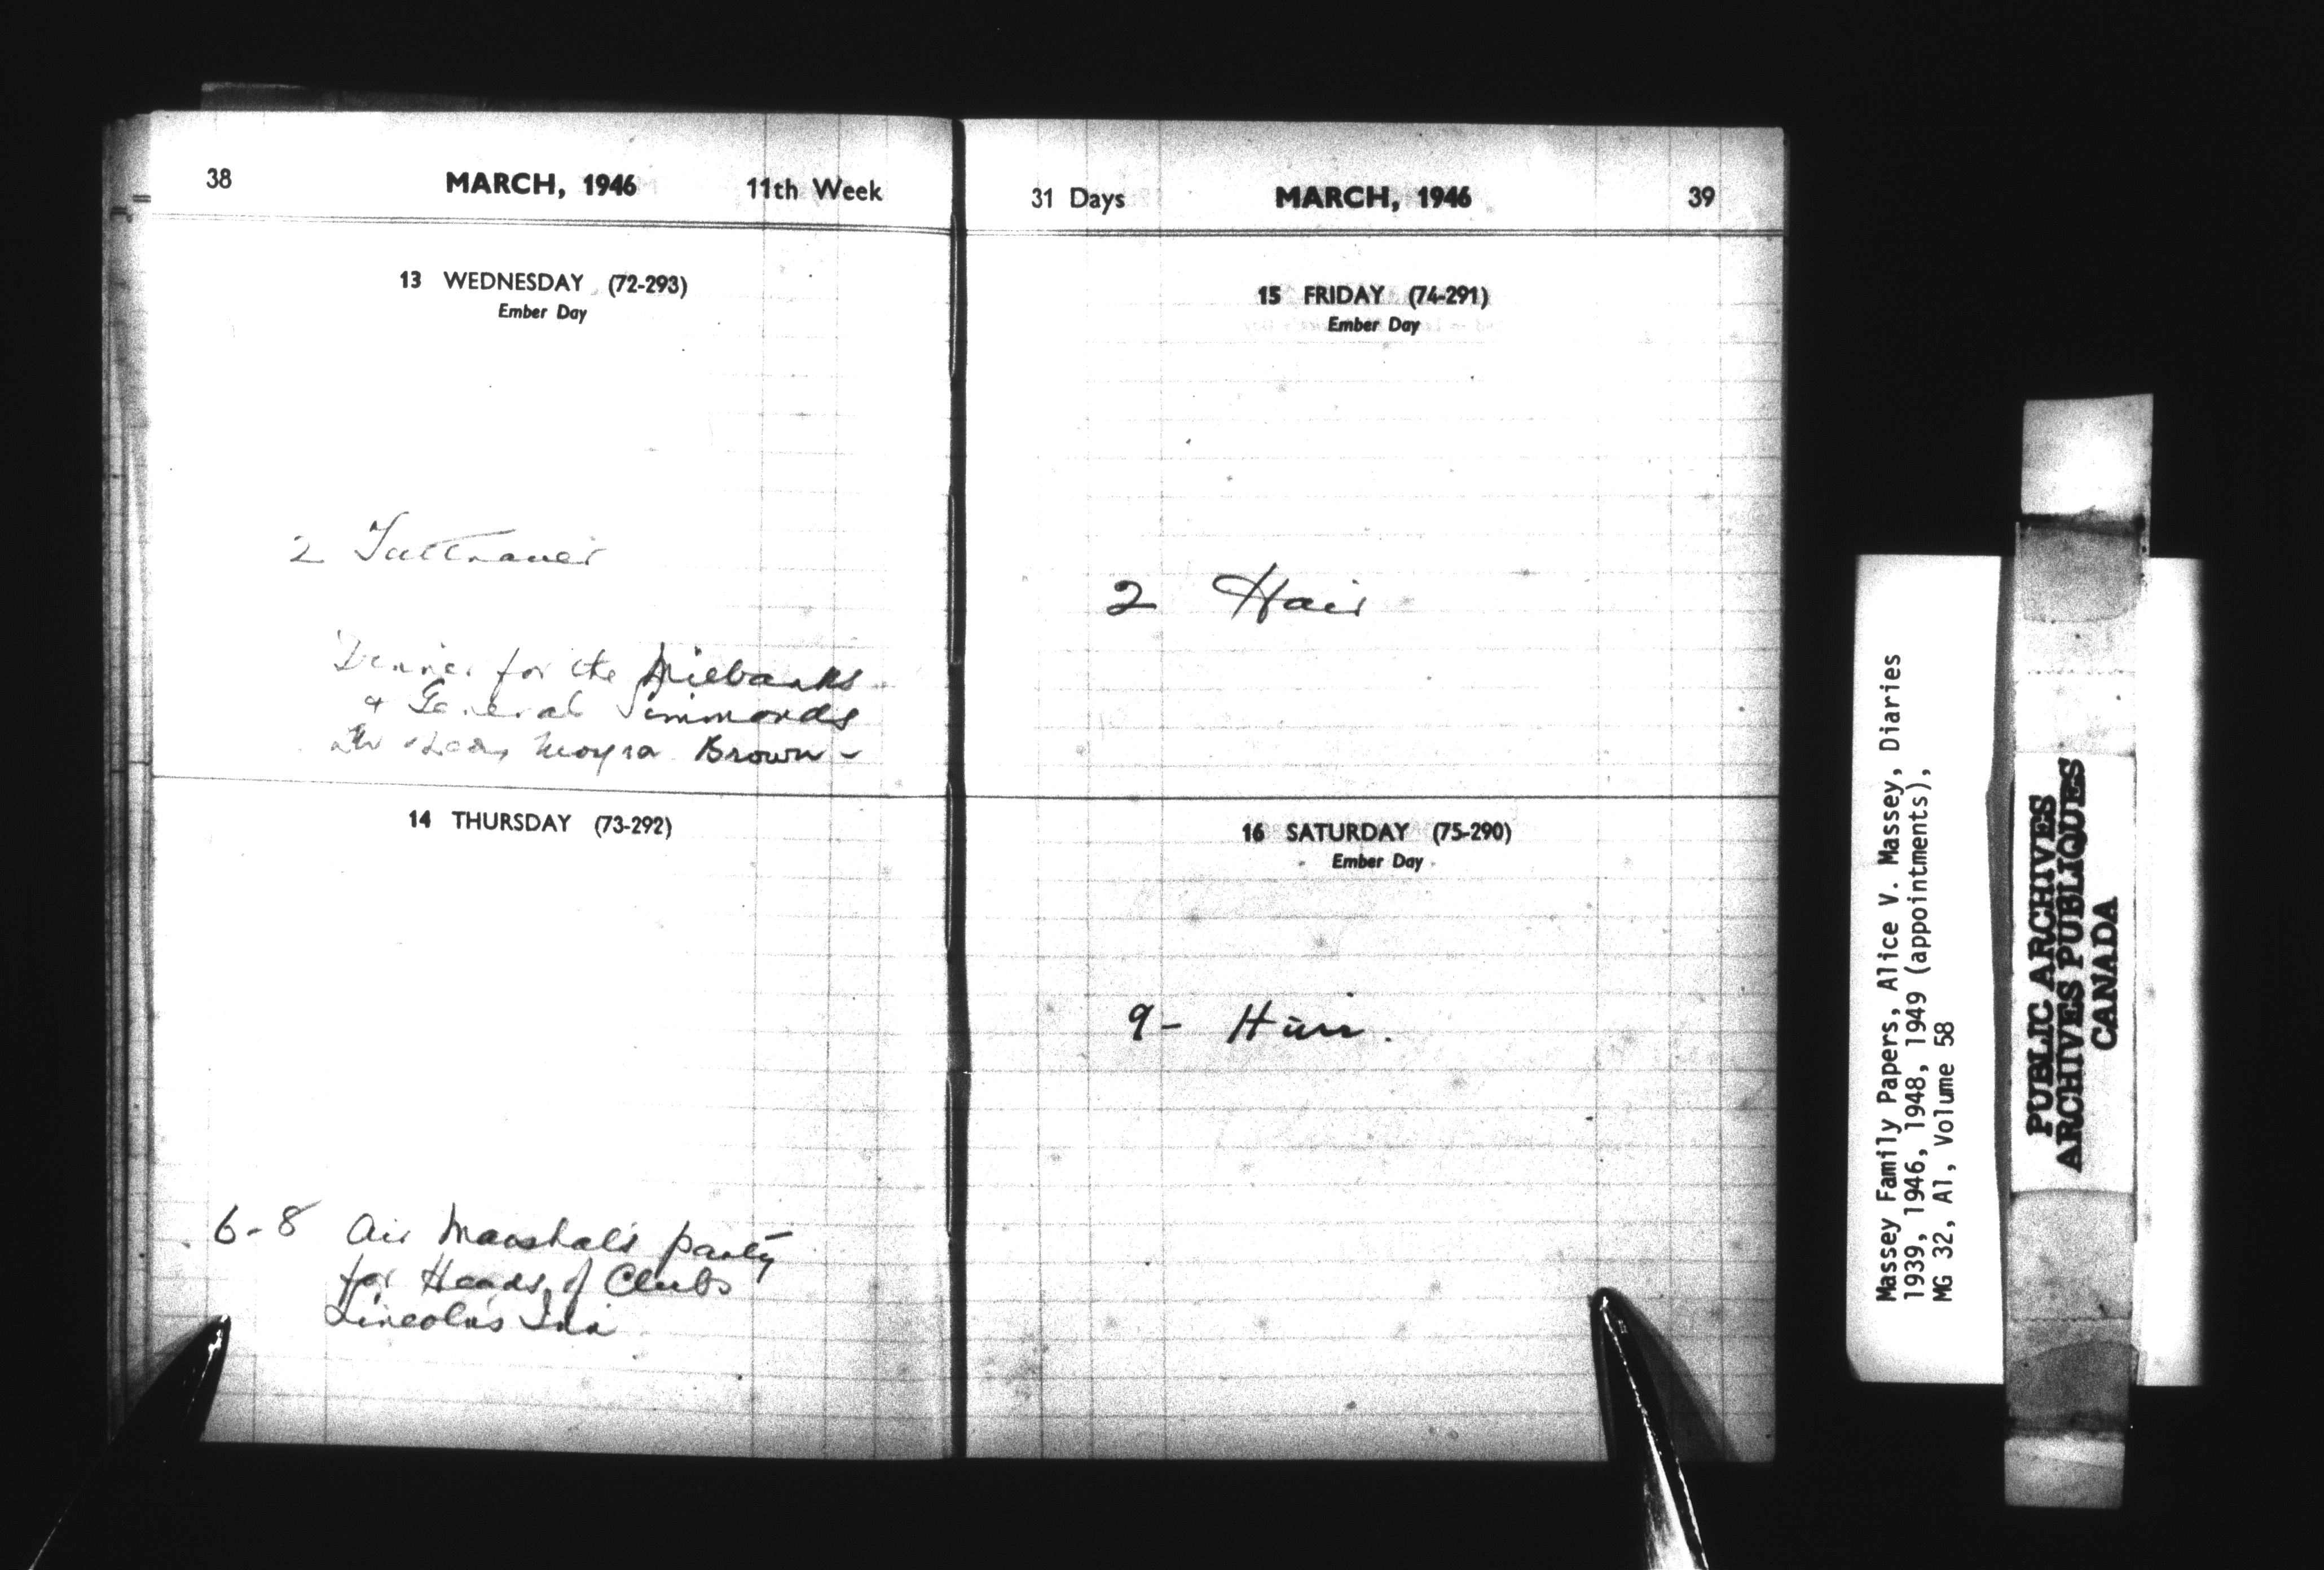 38 MARCH, 1946 11th Week
13 WEDNESDAY (72-293)
Ember Day
2
Dinner for the Milbanks
& General Simmonds
& Lady Moyra Brown -
14 THURSDAY (73-292)
6-8 Air Marshal's party
for Heads of Clubs
Lincoln's Inn
31 Days MARCH, 1946 39
15 FRIDAY (74-291)
Ember Day
2 Hair
16 SATURDAY (75-290)
Ember Day
9-
Massey Family Papers, Alice V. Massey, Diaries
1939, 1946, 1948, 1949 (appointments),
MG 32, A1, Volume 58
PUBLIC ARCHIVES
ARCHIVES PUBLIQUES
CANADA